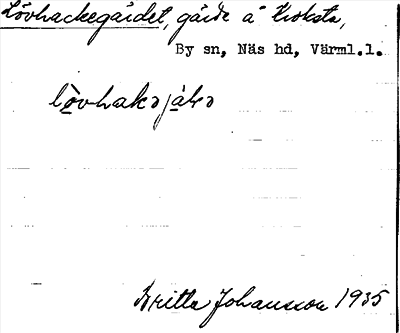 Lövhackegärdet, gärde å Kroksta,
By sn, Näs hd, Värml.l.
Britta Johansson 1935